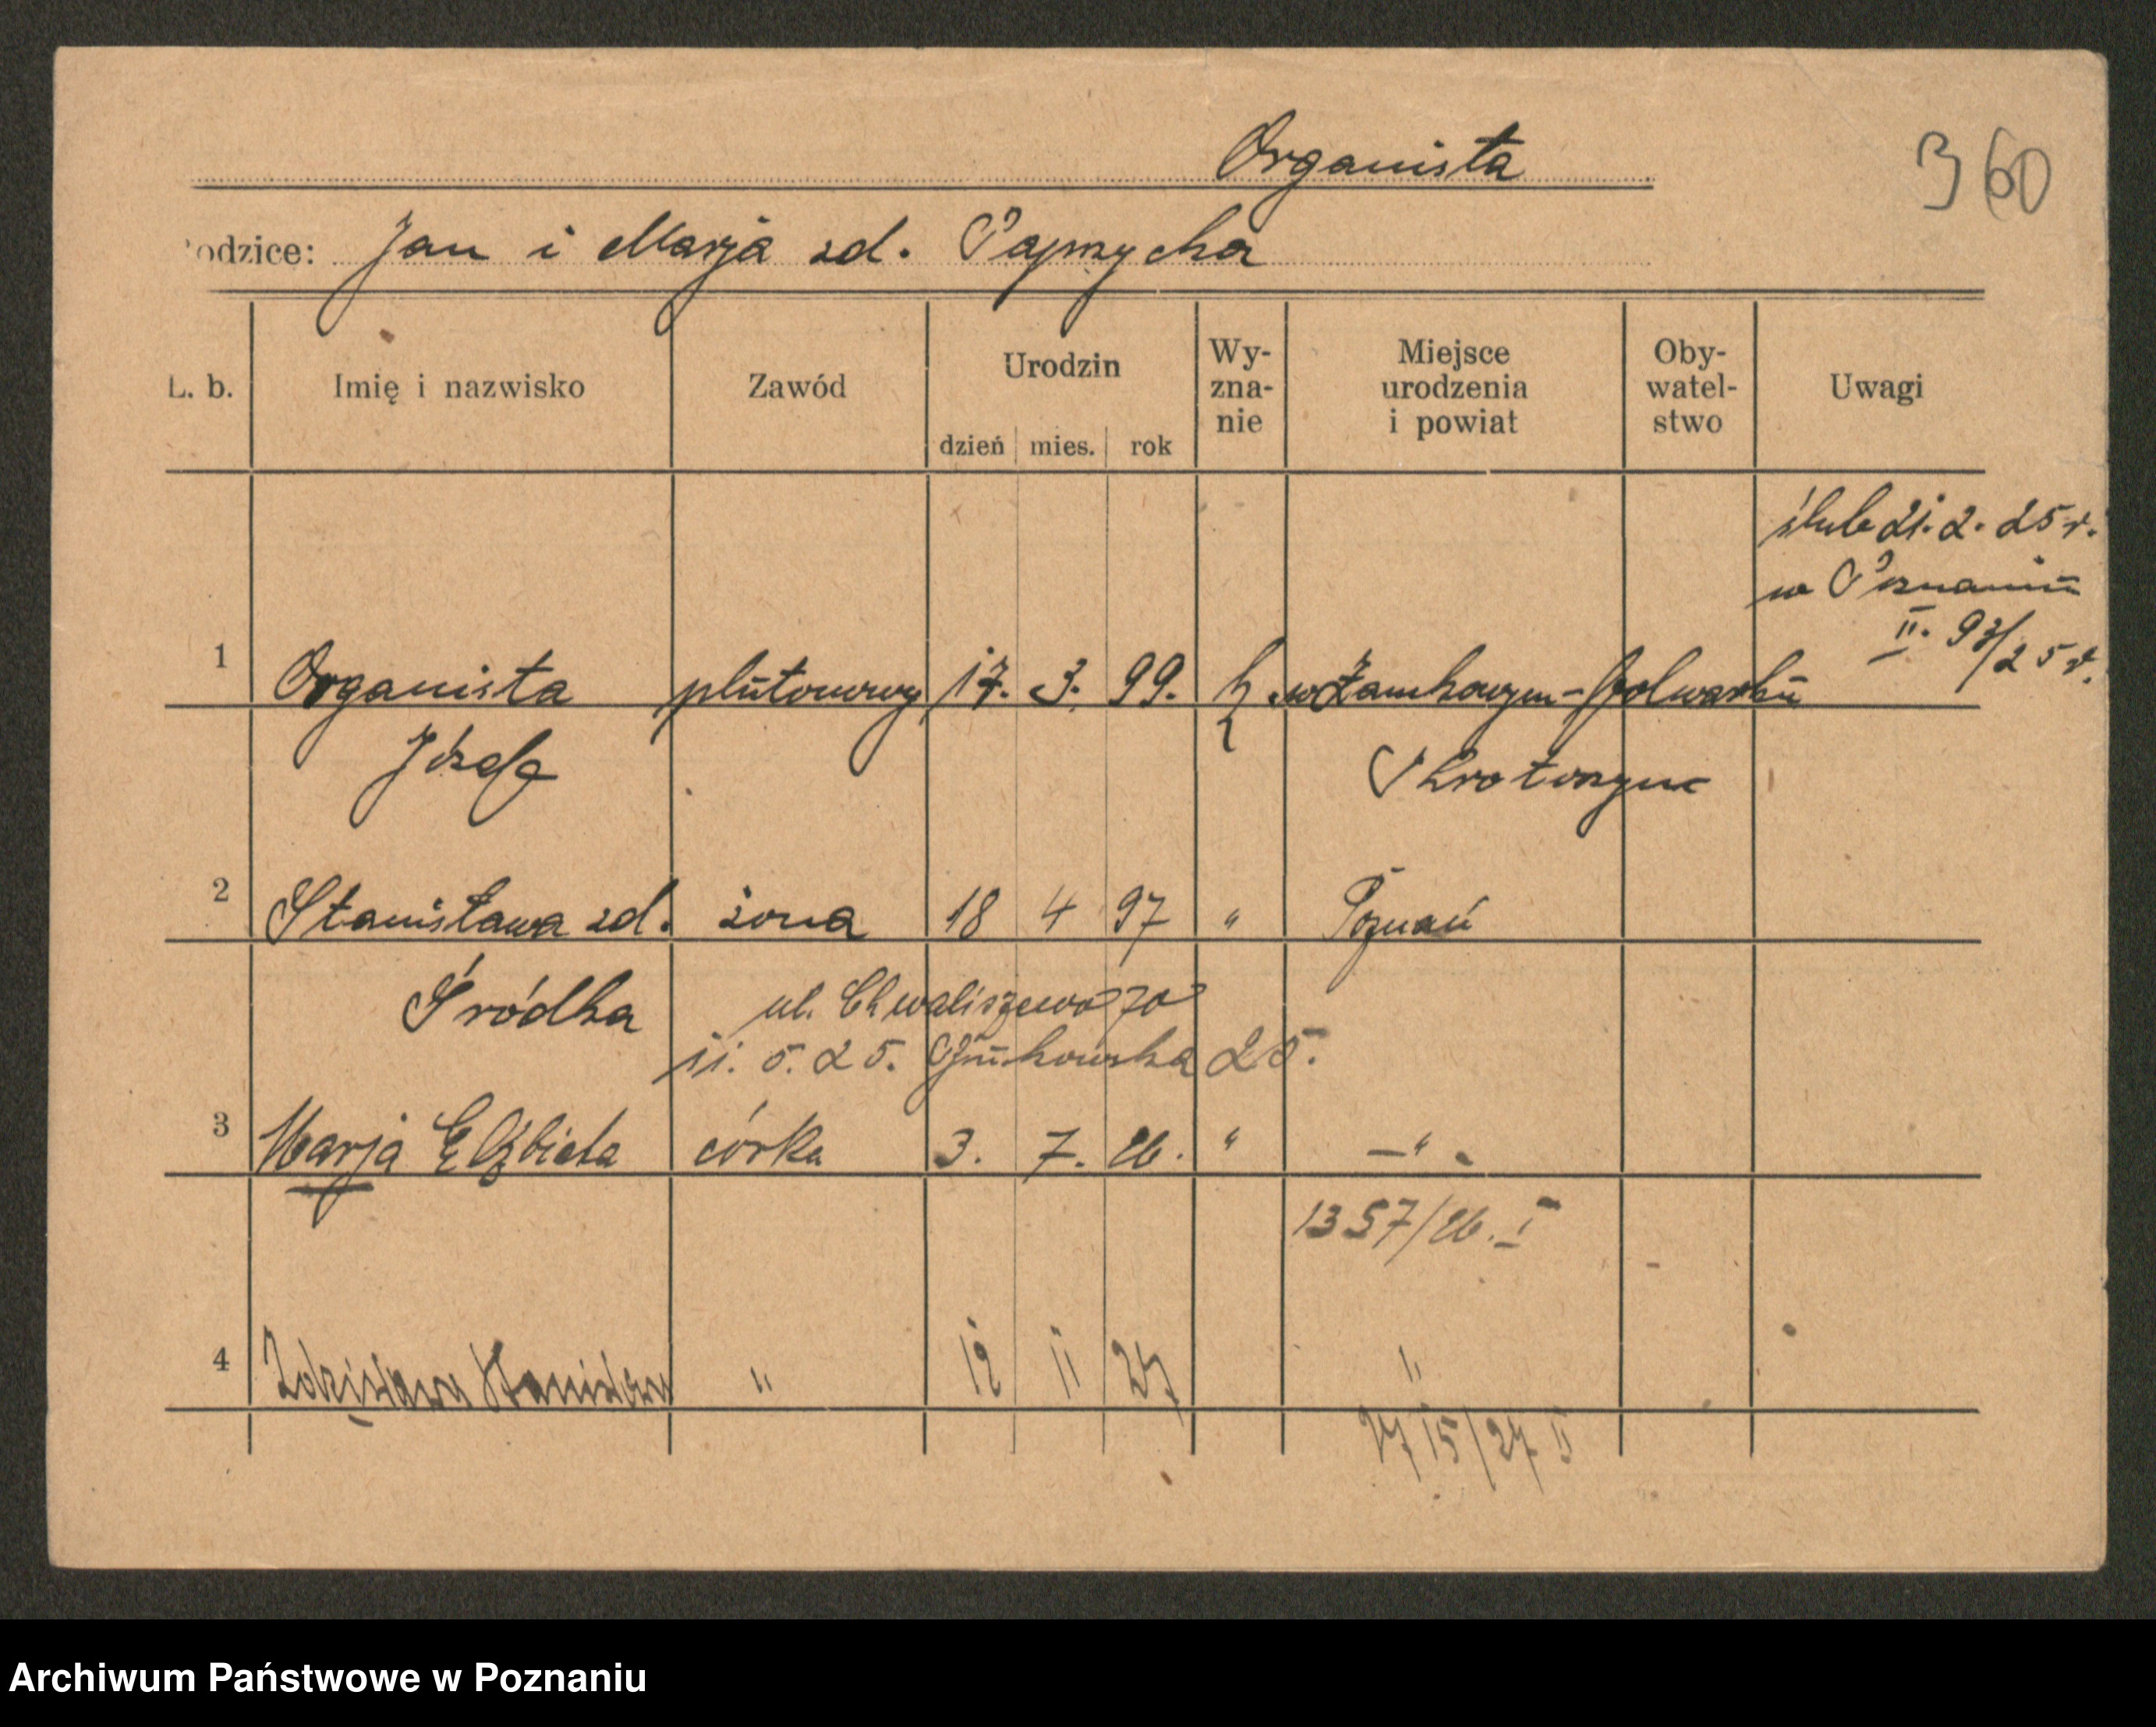 Organista
360
odzice: Jan i Marja zd. Paprzycka
L. b. Imię i nazwisko Zawód Urodzin dzień mies. rok Wy-zna-nie Miejsce urodzenia i powiat Oby-watel-stwo Uwagi
ślub 21. 2. 25 r.
w Poznaniu
II. 93/25 r.
1 Organista plutonowy 17. 3. 99. k w Zamkowym-Folwarku
Józef Krotoszyn
2 Stanisława zd. żona 18 4 97 " Poznań
Śródka ul. Chwaliszewo 70
11. 5. 25. 25.
3 Marja Elżbieta córka 3. 7. 26. " — " -
1357/26. I
4 Zdzisława Stanisława " 12 11 27 "
15/27 II
Archiwum Państwowe w Poznaniu